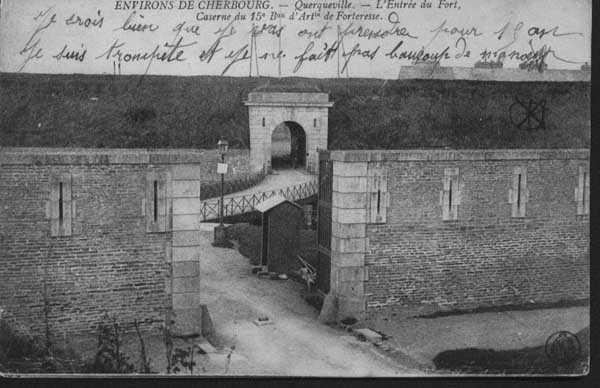 ENVIRONS DE CHERBOURG. - Querqueville. - L'Entrée du Fort,
Caserne du 15e Bon d'Artie de Forteresse.
Je crois bien que je vais ont prendre pour 10 ans
Je suis trompéte et je ne fait pas beaucoup de manœuvre